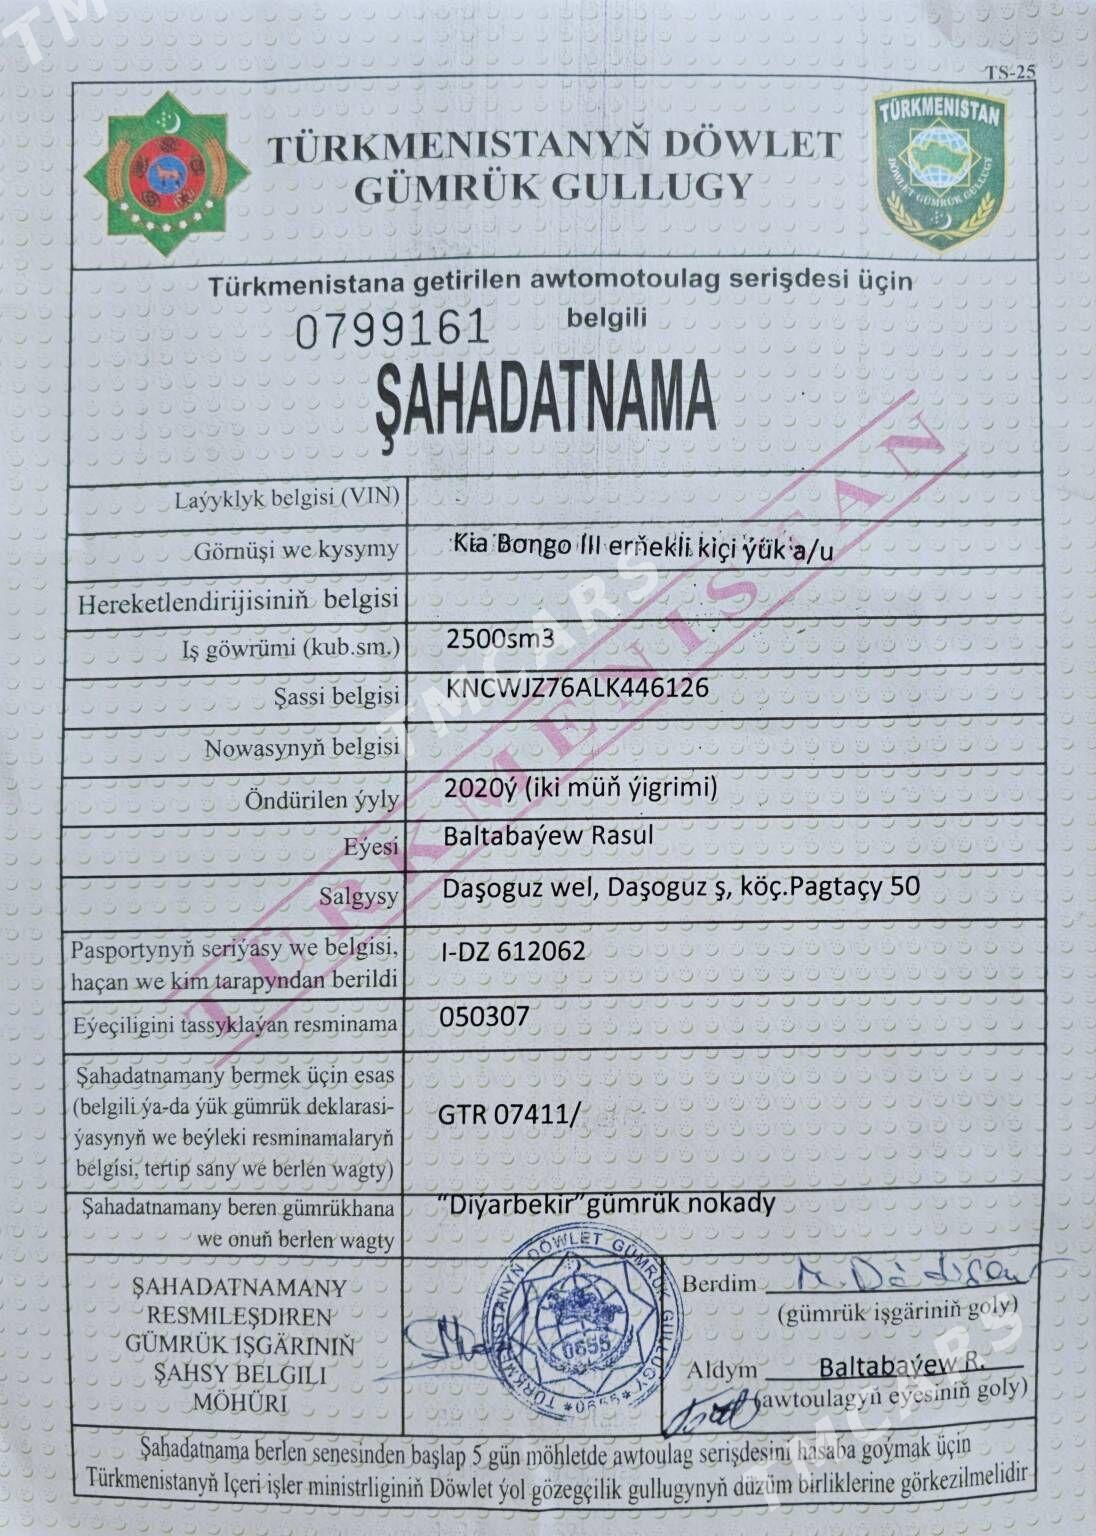 TS-25
TÜRKMENISTANYŇ DÖWLET
GÜMRÜK GULLUGY
TÜRKMENISTAN
DÖWLET GÜMRÜK GULLUGY
Türkmenistana getirilen awtomotoulag serişdesi üçin
0799161 belgili
ŞAHADATNAMA
Laýyklyk belgisi (VIN)
Görnüşi we kysymy Kia Bongo III erňekli kiçi ýük a/u
Hereketlendirijisiniň belgisi
Iş göwrümi (kub.sm.) 2500sm3
Şassi belgisi KNCWJZ76ALK446126
Nowasynyň belgisi
Öndürilen ýyly 2020ý (iki müň ýigrimi)
Eýesi Baltabaýew Rasul
Salgysy Daşoguz wel, Daşoguz ş, köç.Pagtaçy 50
Pasportynyň seriýasy we belgisi,
haçan we kim tarapyndan berildi I-DZ 612062
Eýeçiligini tassyklaýan resminama 050307
Şahadatnamany bermek üçin esas
(belgili ýa-da ýük gümrük deklarasi-
ýasynyň we beýleki resminamalaryň
belgisi, tertip sany we berlen wagty) GTR 07411/
Şahadatnamany beren gümrükhana
we onuň berlen wagty "Diýarbekir"gümrük nokady
TÜRKMENISTAN
ŞAHADATNAMANY
RESMILEŞDIREN
GÜMRÜK IŞGÄRINIŇ
ŞAHSY BELGILI
MÖHÜRI
TÜRKMENISTANYŇ DÖWLET GÜMRÜK GULLUGY
0655
*0655*
Berdim
(gümrük işgäriniň goly)
Aldym Baltabaýew R.
(awtoulagyň eýesiniň goly)
Şahadatnama berlen senesinden başlap 5 gün möhletde awtoulag serişdesini hasaba goýmak üçin
Türkmenistanyň Içeri işler ministrliginiň Döwlet ýol gözegçilik gullugynyň düzüm birliklerine görkezilmelidir
TMCARS
TMCARS